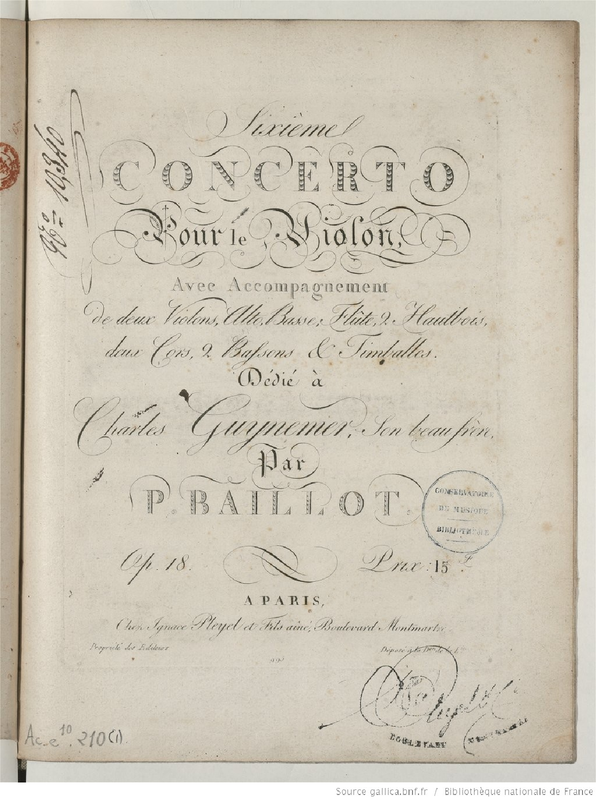 Sixième
CONCERTO
Pour le Violon,
Avec Accompagnement
de deux Violons, Alto, Basse, Flûte, 2 Hautbois,
deux Cors, 2 Bassons & Timballes.
Dédié à
Charles Guynemer, Son beau frère,
Par
P. BAILLOT.
Op. 18. Prix: 15
A PARIS,
Chez Ignace Pleyel et Fils aîné, Boulevard Montmartre
Propriété des Editeurs Déposé à la
CONSERVATOIRE
DE MUSIQUE
BIBLIOTHÈQUE
BOULEVART
Ac.e.10 210(1)
Source gallica.bnf.fr / Bibliothèque nationale de France